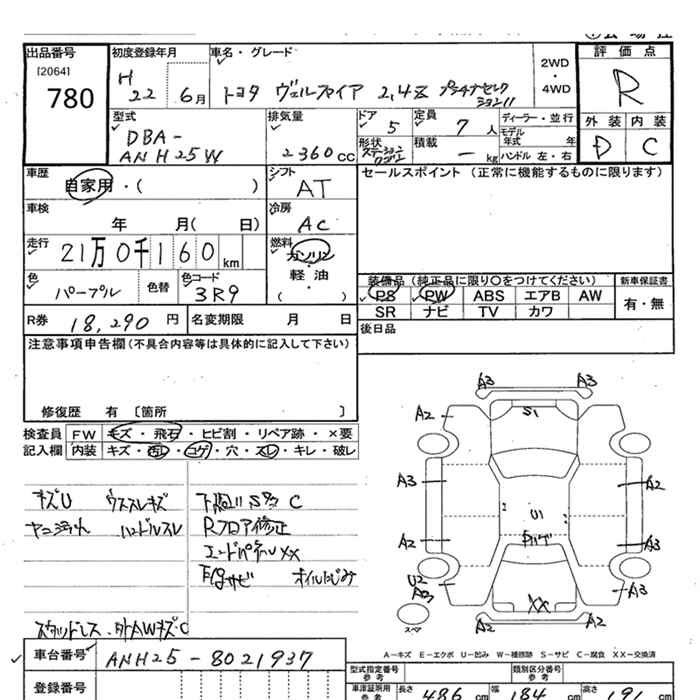 出品番号 初度登録年月 車名・グレード 2WD・4WD 評価点
[2064] 780
H22 6月 トヨタ ヴェルファイア 2.4Z プラチナセレクションII
R
型式 DBA-ANH25W
排気量 2360cc
ドア 5
定員 7人
ディーラー・並行
モデル年式 年
形状 ステーションワゴン
積載 - kg
ハンドル 左・右
外装 内装
D C
車歴 自家用・( )
シフト AT
セールスポイント (正常に機能するものに限ります)
車検 年 月( 日)
冷房 AC
走行 21万0千160km
燃料 ガソリン・軽油 ( )
色 パープル 色替 色コード 3R9
装備品 (純正品に限り○をつけてください) 新車保証書
PS PW ABS エアB AW 有・無
SR ナビ TV カワ
R券 18,290円 名変期限 月 日
後日品
注意事項申告欄 (不具合内容等は具体的に記入して下さい)
修復歴 有 [箇所 ]
検査員 FW キズ・飛石・ヒビ割・リペア跡・×要
記入欄 内装 キズ・汚レ・コゲ・穴・スレ・キレ・破レ
キズU ウススレキズ S C
ハンドルスレ Rフロア修正
エンドパネルXX
下回サビ オイルにじみ
スタッドレス、外AWキズC
A3 A3
A2 S1
A3 A2
U1
A2 A3
U2
A3
XX
A2 A2
スペア
A-キズ E-エクボ U-凹み W-補修跡 S-サビ C-腐食 XX-交換済
車台番号 ANH25-8021937
型式指定番号 参考 類別区分番号 参考
登録番号
車庫証明用 参考 長さ 486cm 幅 184cm 高さ 191cm